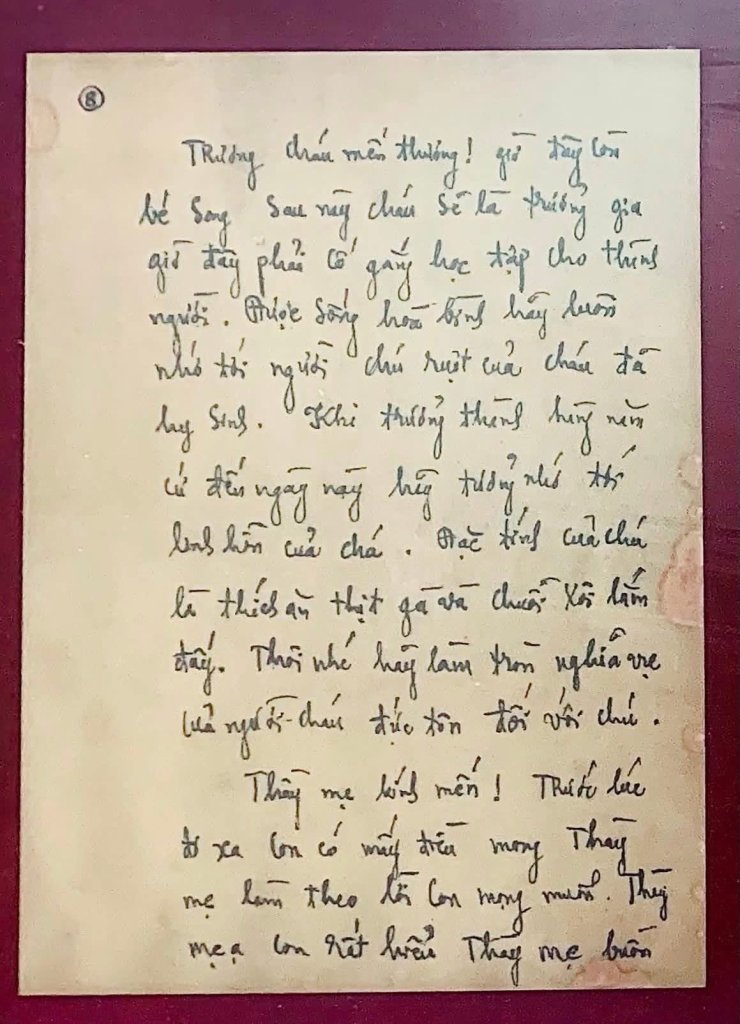 8
Trường cháu mến thương! giờ đây còn
bé Song Sau này cháu Sẽ là trưởng gia
giờ đây phải cố gắng học tập cho thành
người. Được Sống hoà bình hãy luôn
nhớ tới người chú ruột của cháu đã
hy Sinh. Khi trưởng thành hàng năm
cứ đến ngày này hãy tưởng nhớ tới
linh hồn của chú. Đặc tính của chú
là thích ăn thịt gà và chuối Xôi lắm
đấy. Thôi nhé hãy làm tròn nghĩa vụ
của người cháu đức tôn đối với chú.
Thầy mẹ kính mến! Trước lúc
đi xa Con có mấy điều mong Thầy
mẹ làm theo lời Con mong muốn. Thầy
mẹ ạ Con rất hiểu Thầy mẹ buồn